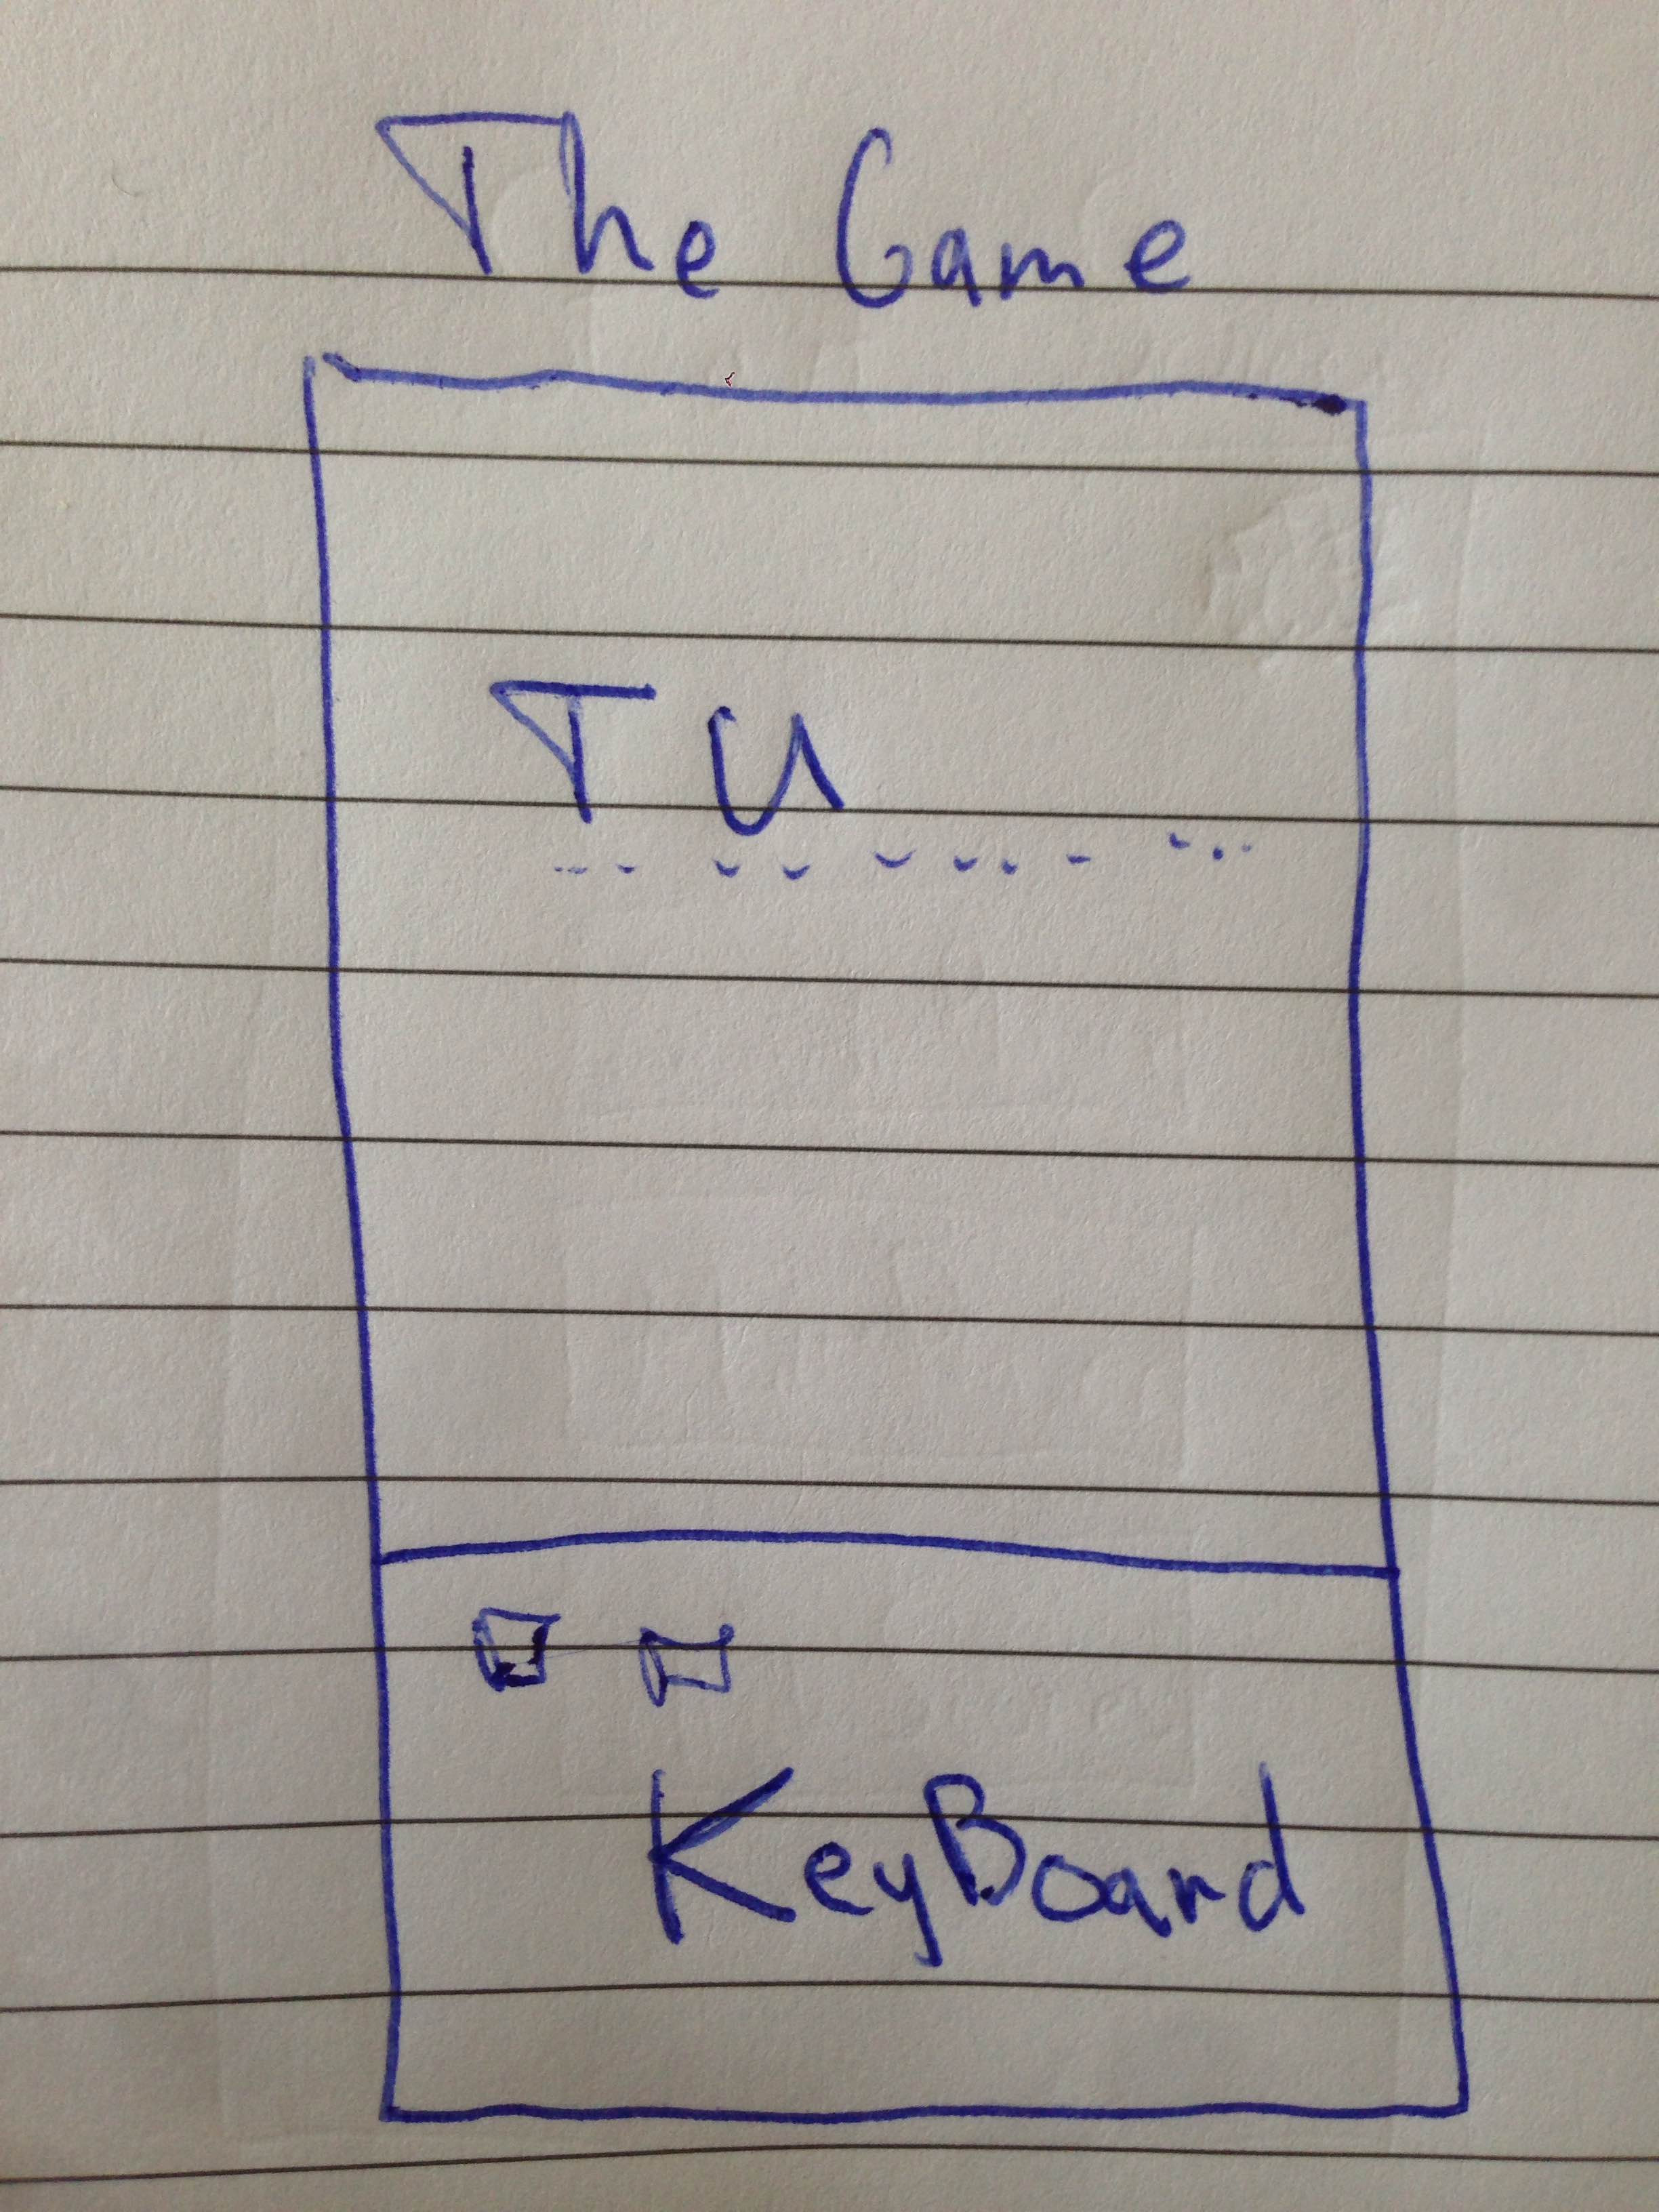 The Game
TU
KeyBoard